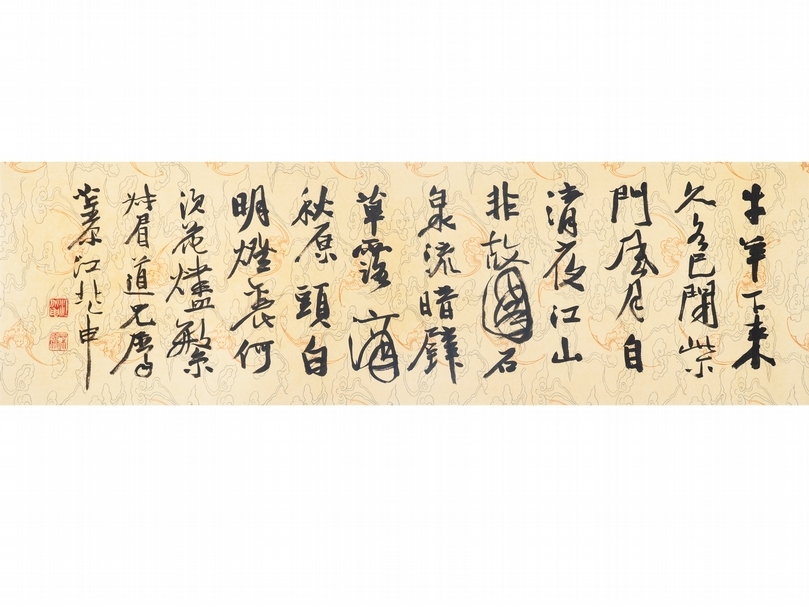 牛羊下来
久各已閉柴
門風月自
清夜江山
非故國石
泉流暗壁
草露滴
秋原頭白
明燈裏何
須花燼繁
眉道兄
江兆申